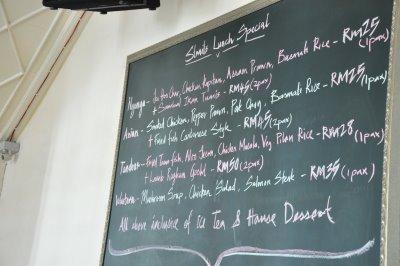 Slmdb Lunch Special
Nyonya - Ju Hoo Char, Chicken Kapitan, Assam Prawn, Basmati Rice - RM25 (1pax)
+ Sambal Ikan Tumis - RM45 (2pax)
Asian - Smoked Chicken, Pepper Prawn, Pak Choy, Basmati Rice - RM25 (1pax)
+ Fried fish Cantonese Style - RM45 (2pax)
Tandoor - Fried Tuna fish, Aloo Jeera, Chicken Masala, Veg Pilau Rice - RM28 (1pax)
+ Lamb Rogham Gosht - RM50 (2pax)
Western - Mushroom Soup, Chicken Salad, Salmon Steak - RM35 (1pax)
All above inclusive of ice Tea & House Dessert